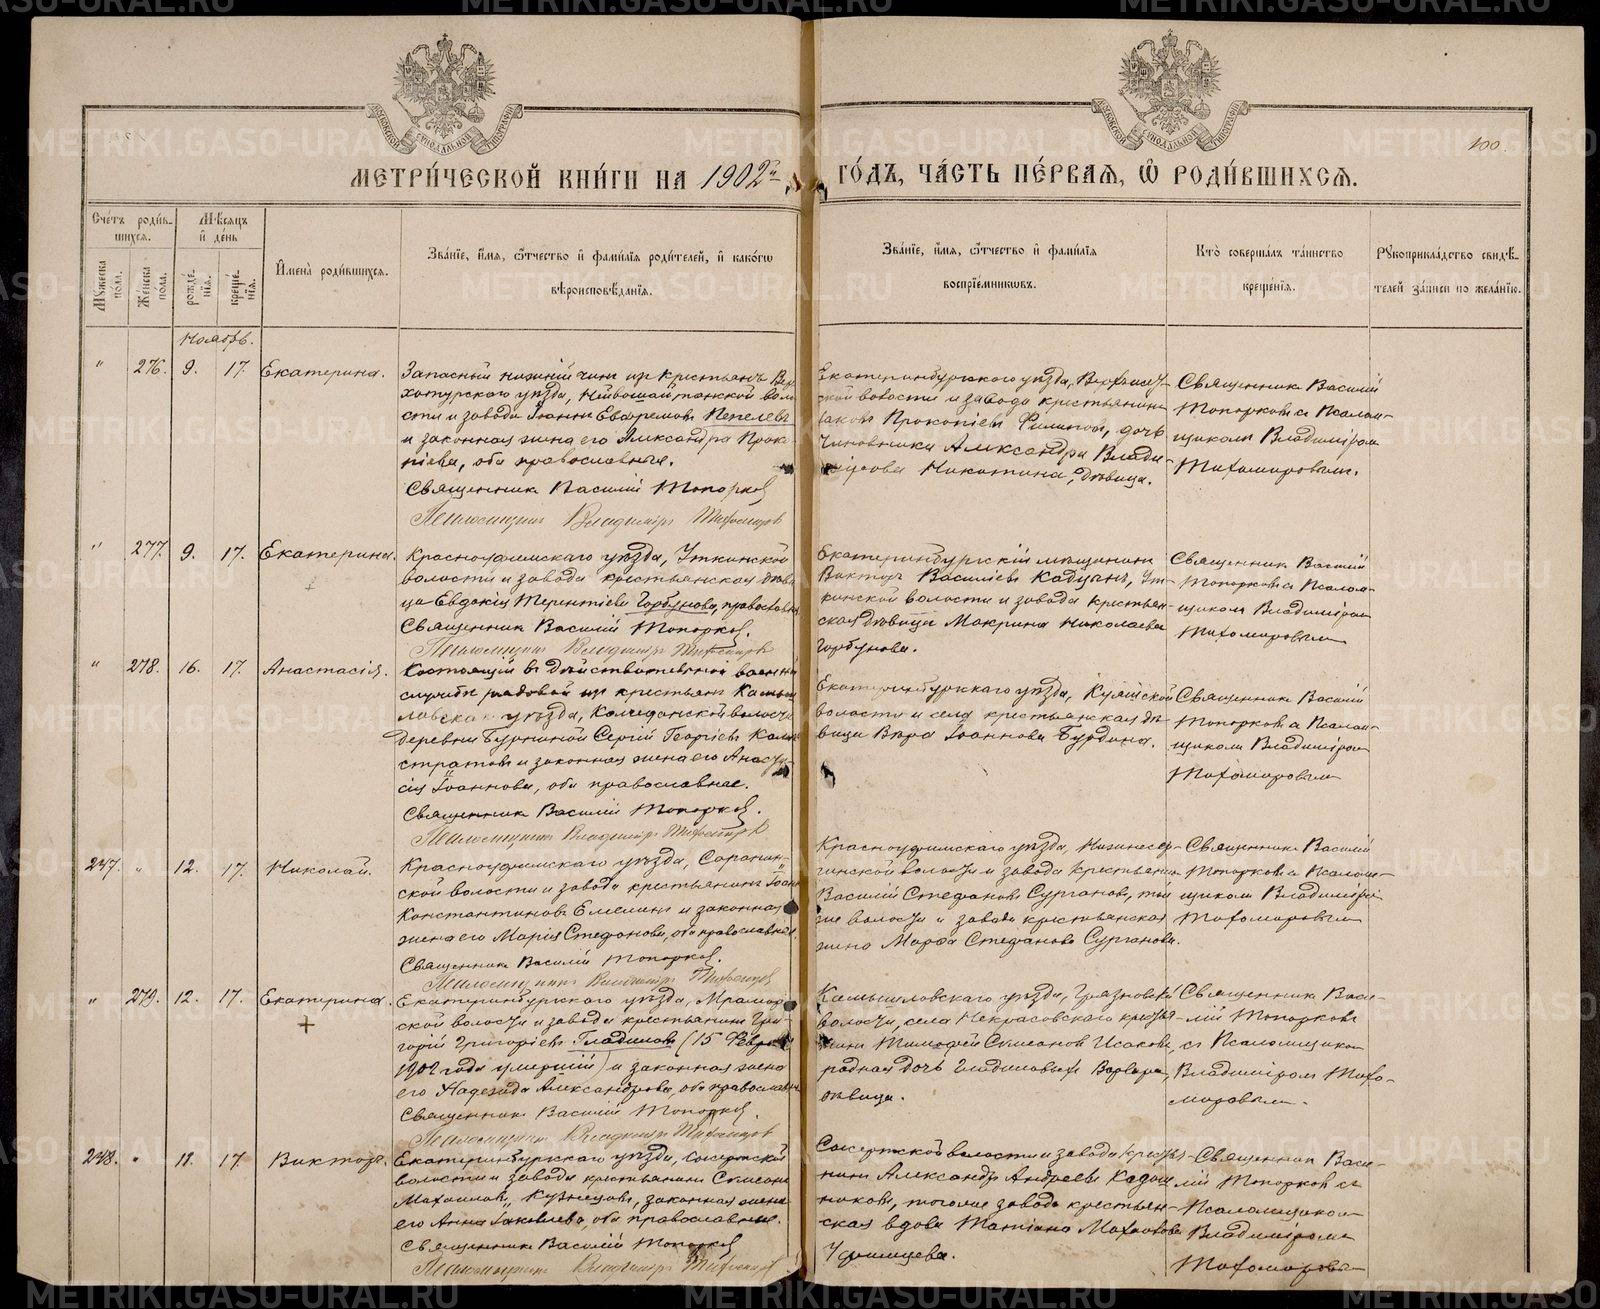 METRIKI.GASO-URAL.RU
МОСКОВСКОЙ СѴНОДАЛЬНОЙ ТИПОГРАФІИ
МОСКОВСКОЙ СѴНОДАЛЬНОЙ ТИПОГРАФІИ
100.
МЕТРИ́ЧЕСКОЙ КНИ́ГИ НА 1902й
ГО́ДЪ, ЧА́СТЬ ПЕ́РВАѦ, Ѡ҆ РОДИ́ВШИХСѦ.
Сче́тъ роди́в-
шихсѧ.
Мѣ́сѧцъ
и҆ де́нь
Му́жеска по́ла.
Же́нска по́ла.
рожде́-
нїѧ.
креще́-
нїѧ.
И҆мена̀ роди́вшихсѧ.
Зва́нїе, и҆́мѧ, ѻ҆́тчество и҆ фами́лїѧ роди́телей, и҆ како́гѡ
вѣроисповѣ́данїѧ.
Зва́нїе, и҆́мѧ, ѻ҆́тчество и҆ фами́лїѧ
воспрїе́мникѡвъ.
Кто̀ соверша́лъ та́инство
креще́нїѧ.
Рꙋкоприкла́дство свидѣ́-
телей за́писи по жела́нїю.
Ноябрь.
" 276. 9. 17. Екатерина.
Запасный нижній чинъ изъ крестьянъ Вер-
хотурскаго уѣзда, Нейвошайтанской воло-
сти и завода Іоаннъ Евфремовъ Пепелевъ
и законная жена его Александра Проко-
піева, оба православные.
Священникъ Василій Топорковъ
Псаломщикъ Владиміръ Тихомировъ
Екатеринбургскаго уѣзда, Верхисет-
ской волости и завода крестьянинъ
Іаковъ Прокопіевъ Филиповъ, дочь
чиновника Александра Влади-
мірова Никитина, дѣвица.
Священникъ Василій
Топорковъ съ Псалом-
щикомъ Владиміромъ
Тихомировымъ.
" 277. 9. 17. Екатерина.
Красноуфимскаго уѣзда, Уткинской
волости и завода крестьянская дѣви-
ца Евдокія Терентіева Горбунова, православная
Священникъ Василій Топорковъ.
Псаломщикъ Владиміръ Тихомировъ
Екатеринбургскій мѣщанинъ
Викторъ Василіевъ Кадчинъ, Ут-
кинской волости и завода крестьян-
ская дѣвица Макрина Николаева
Горбунова.
Священникъ Василій
Топорковъ съ Псалом-
щикомъ Владиміромъ
Тихомировымъ
" 278. 16. 17. Анастасія.
Состоящій въ дѣйствительной военной
службѣ рядовой изъ крестьянъ Камыш-
ловскаго уѣзда, Колчеданской волости
деревни Бурниной Сергій Георгіевъ Кали-
стратовъ и законная жена его Анаста-
сія Іоаннова, оба православные.
Священникъ Василій Топорковъ.
Псаломщикъ Владиміръ Тихомировъ
Екатеринбургскаго уѣзда, Куяшской
волости и села крестьянская дѣ-
вица Вѣра Іоаннова Бурдина.
Священникъ Василій
Топорковъ съ Псалом-
щикомъ Владиміромъ
Тихомировымъ
247. " 12. 17. Николай.
Красноуфимскаго уѣзда, Саранин-
ской волости и завода крестьянинъ Іоаннъ
Константиновъ Емелинъ и законная
жена его Марія Стефанова, оба православные.
Священникъ Василій Топорковъ.
Псаломщикъ Владиміръ Тихомировъ
Красноуфимскаго уѣзда, Нижнесер-
гинской волости и завода крестьянинъ
Василій Стефановъ Сургановъ, той
же волости и завода крестьянская
жена Марфа Стефанова Сурганова.
Священникъ Василій
Топорковъ съ Псалом-
щикомъ Владиміромъ
Тихомировымъ
" 279. 12. 17. Екатерина.
Екатеринбургскаго уѣзда, Мрамор-
ской волости и завода крестьянинъ Гри-
горій Григоріевъ Гладиловъ (15 Февраля
1902 года умершій) и законная жена
его Надежда Александрова, оба православные
Священникъ Василій Топорковъ.
Псаломщикъ Владиміръ Тихомировъ
Камышловскаго уѣзда, Грязновской
волости, села Некрасовскаго кресть-
янинъ Тимофей Симеоновъ Исаковъ,
родная дочь Гладиловыхъ Варвара,
дѣвица.
Священникъ Васи-
лій Топорковъ
съ Псаломщикомъ
Владиміромъ Тихо-
мировымъ.
248. " 11. 17. Викторъ.
Екатеринбургскаго уѣзда, Сысертской
волости и завода крестьянинъ Симеонъ
Михаиловъ Кузнецовъ, законная жена
его Анна Іаковлева, оба православные.
Священникъ Василій Топорковъ
Псаломщикъ Владиміръ Тихомировъ
Сысертской волости и завода кресть-
янинъ Александръ Андреевъ Кадош-
никовъ, тогоже завода крестьян-
ская вдова Татіана Михаилова
Священникъ Васи-
лій Топорковъ съ
Псаломщикомъ
Владиміромъ
Тихомировымъ